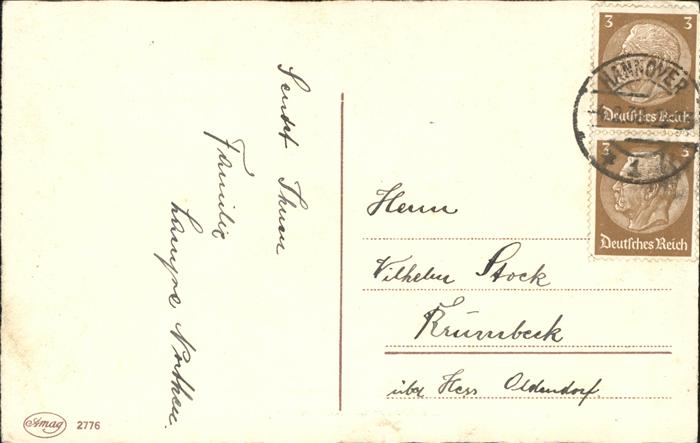 Sendet Ihnen
Familie
Herrn
Wilhelm Stock
Krumbeck
über Hess Oldendorf
3 3
HANNOVER
1
Deutsches Reich
3
Deutsches Reich
Amag 2776